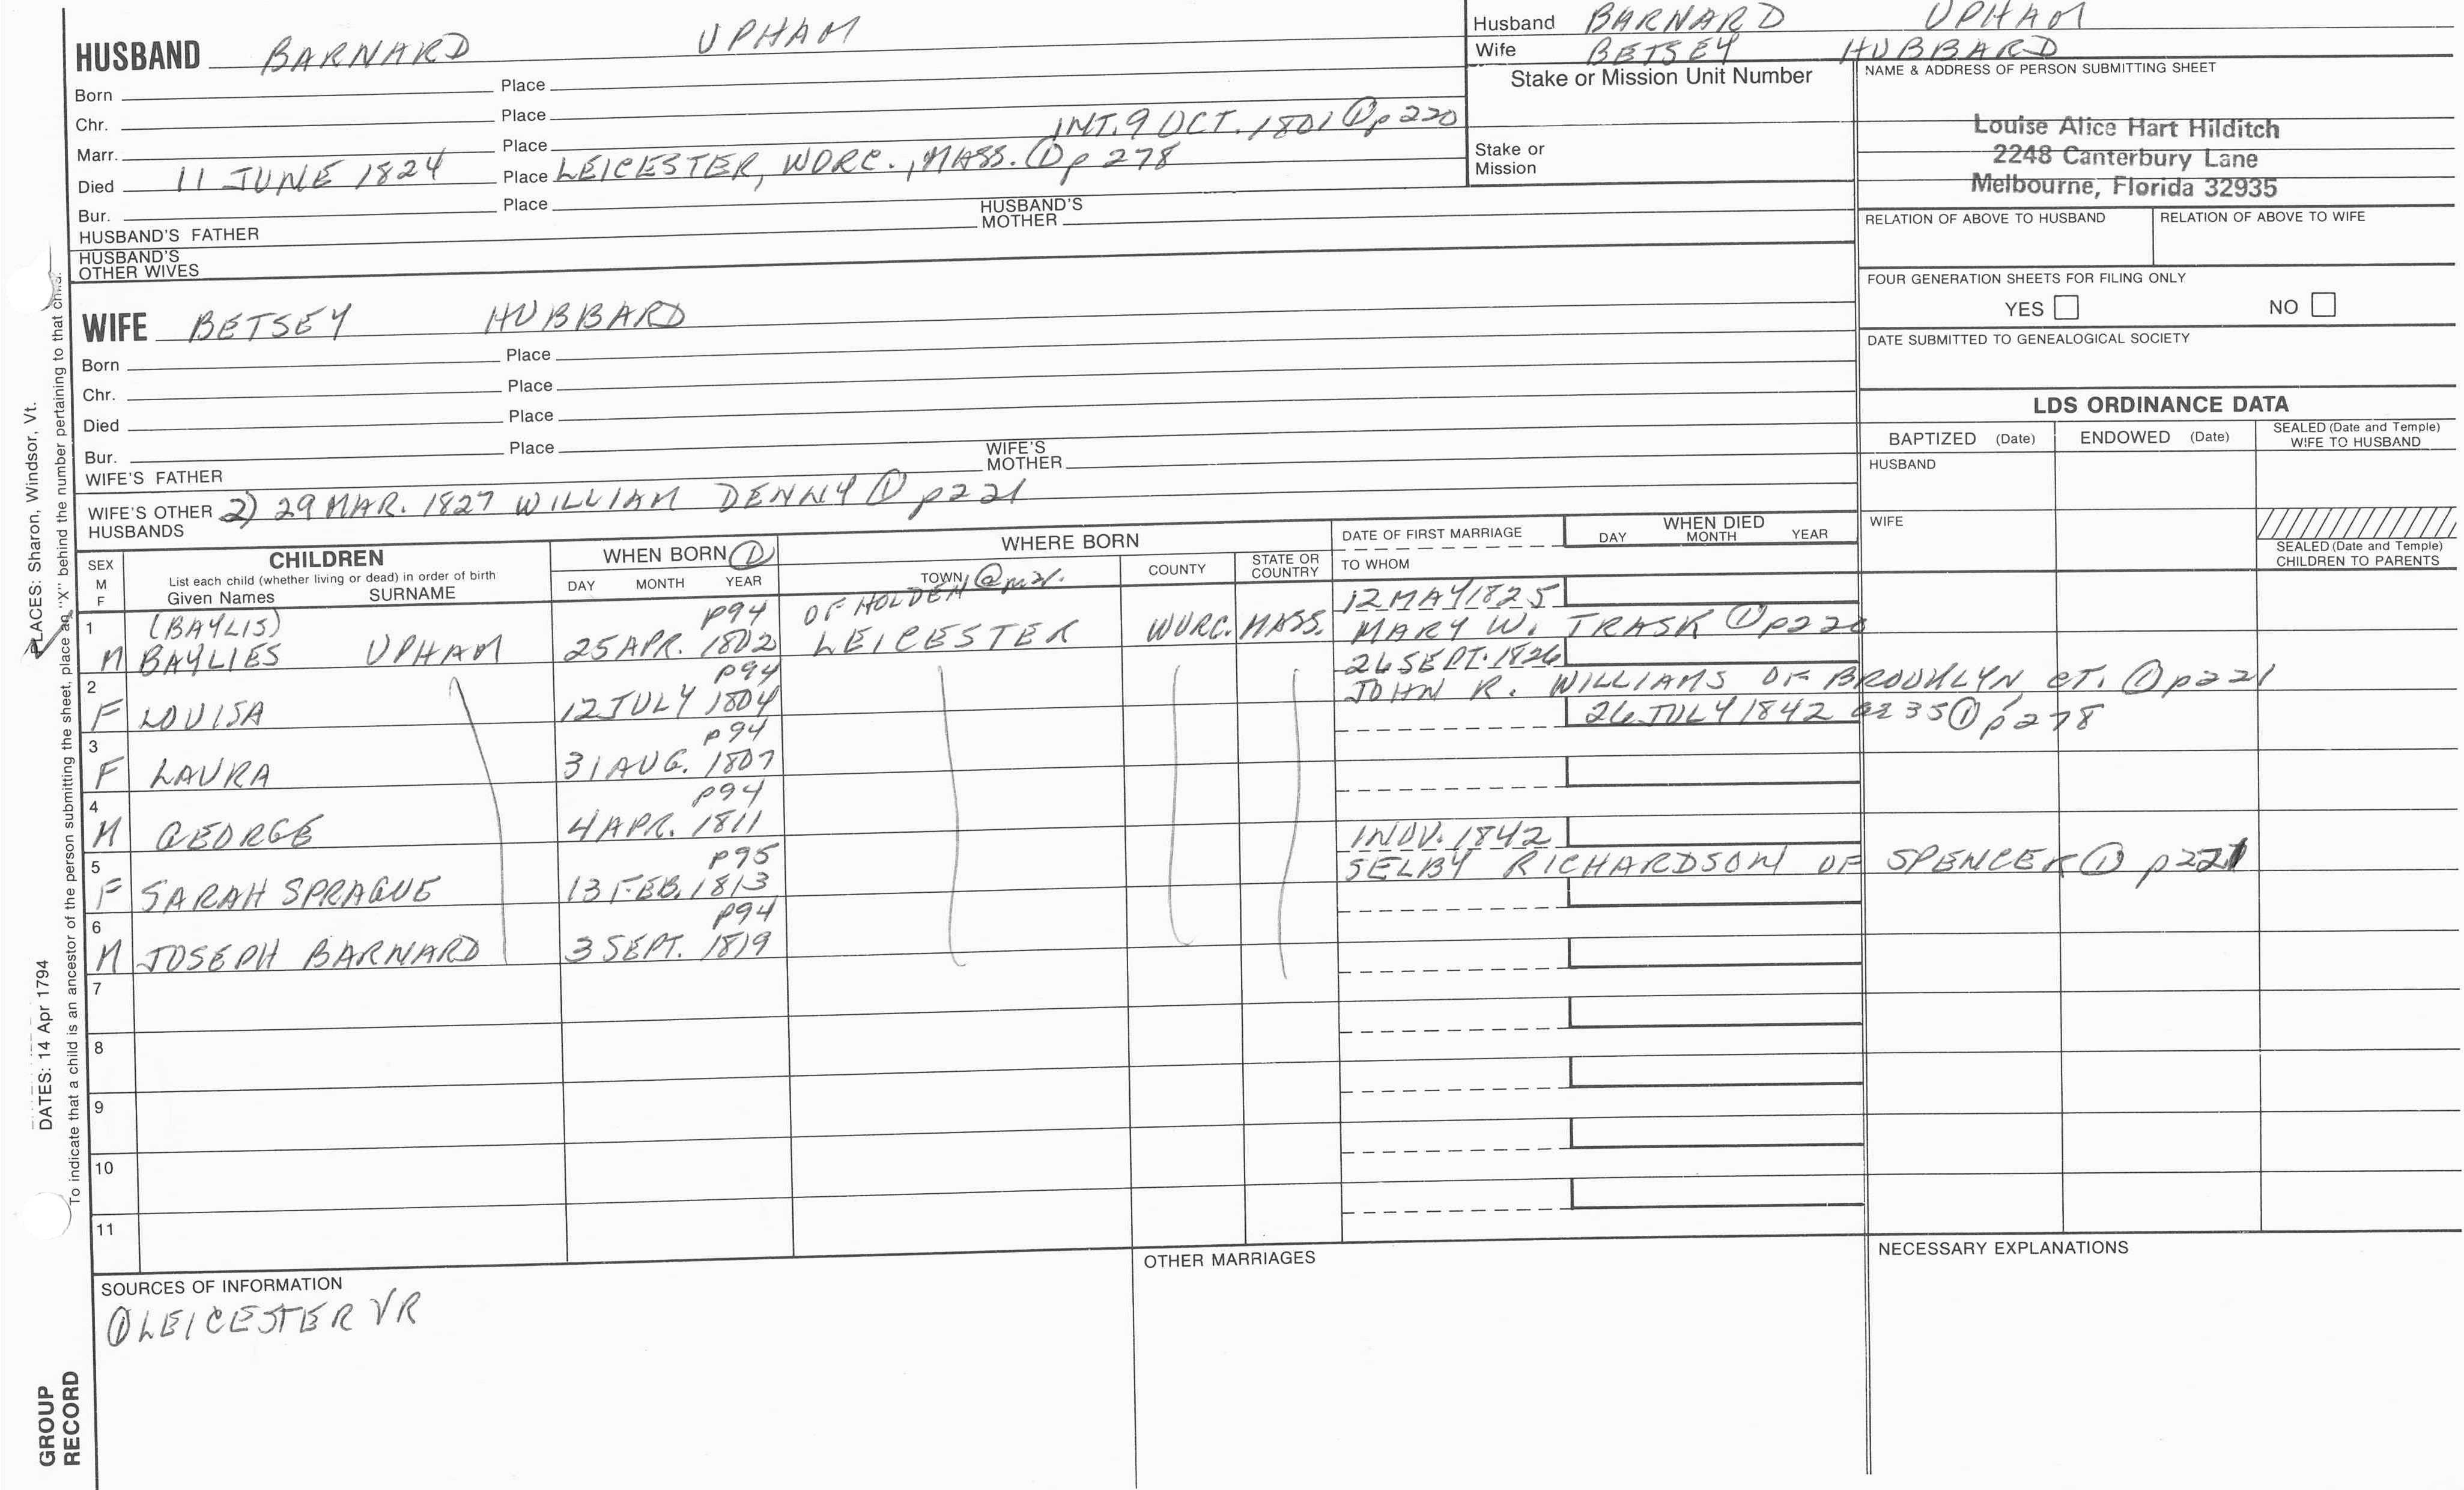 HUSBAND BARNARD UPHAM
Born Place
Chr. Place
Marr. Place INT. 9 OCT. 1801 ① p 220
Died 11 JUNE 1824 Place LEICESTER, WORC., MASS. ① p 278
Bur. Place
HUSBAND'S FATHER HUSBAND'S MOTHER
HUSBAND'S OTHER WIVES
Husband BARNARD UPHAM
Wife BETSEY HUBBARD
Stake or Mission Unit Number
Stake or Mission
NAME & ADDRESS OF PERSON SUBMITTING SHEET
Louise Alice Hart Hilditch
2248 Canterbury Lane
Melbourne, Florida 32935
RELATION OF ABOVE TO HUSBAND RELATION OF ABOVE TO WIFE
FOUR GENERATION SHEETS FOR FILING ONLY
YES NO
DATE SUBMITTED TO GENEALOGICAL SOCIETY
WIFE BETSEY HUBBARD
Born Place
Chr. Place
Died Place
Bur. Place
WIFE'S FATHER WIFE'S MOTHER
WIFE'S OTHER HUSBANDS 2) 29 MAR. 1827 WILLIAM DENNY ① p221
LDS ORDINANCE DATA
BAPTIZED (Date) ENDOWED (Date) SEALED (Date and Temple) WIFE TO HUSBAND
HUSBAND
WIFE
SEALED (Date and Temple) CHILDREN TO PARENTS
SEX M F
CHILDREN
List each child (whether living or dead) in order of birth
Given Names SURNAME
WHEN BORN ①
DAY MONTH YEAR
WHERE BORN
TOWN COUNTY STATE OR COUNTRY
DATE OF FIRST MARRIAGE
TO WHOM
WHEN DIED
DAY MONTH YEAR
1 (BAYLIS) p94 OF HOLDEN @ m. 12 MAY 1825
M BAYLIES UPHAM 25 APR. 1802 LEICESTER WORC. MASS. MARY W. TRASK ① p220
2 p94 26 SEPT. 1826
F LOUISA 12 JULY 1804 JOHN R. WILLIAMS OF BROOKLYN CT. ① p221
3 p94 26 JULY 1842 ae 35 ① p278
F LAURA 31 AUG. 1807
4 p94
M GEORGE 4 APR. 1811
5 p95 1 NOV. 1842
F SARAH SPRAGUE 13 FEB. 1813 SELBY RICHARDSON OF SPENCER ① p221
6 p94
M JOSEPH BARNARD 3 SEPT. 1819
7
8
9
10
11
SOURCES OF INFORMATION
① LEICESTER VR
OTHER MARRIAGES
NECESSARY EXPLANATIONS
PLACES: Sharon, Windsor, Vt.
DATES: 14 Apr 1794
To indicate that a child is an ancestor of the person submitting the sheet, place an "X" behind the number pertaining to that child.
GROUP
RECORD